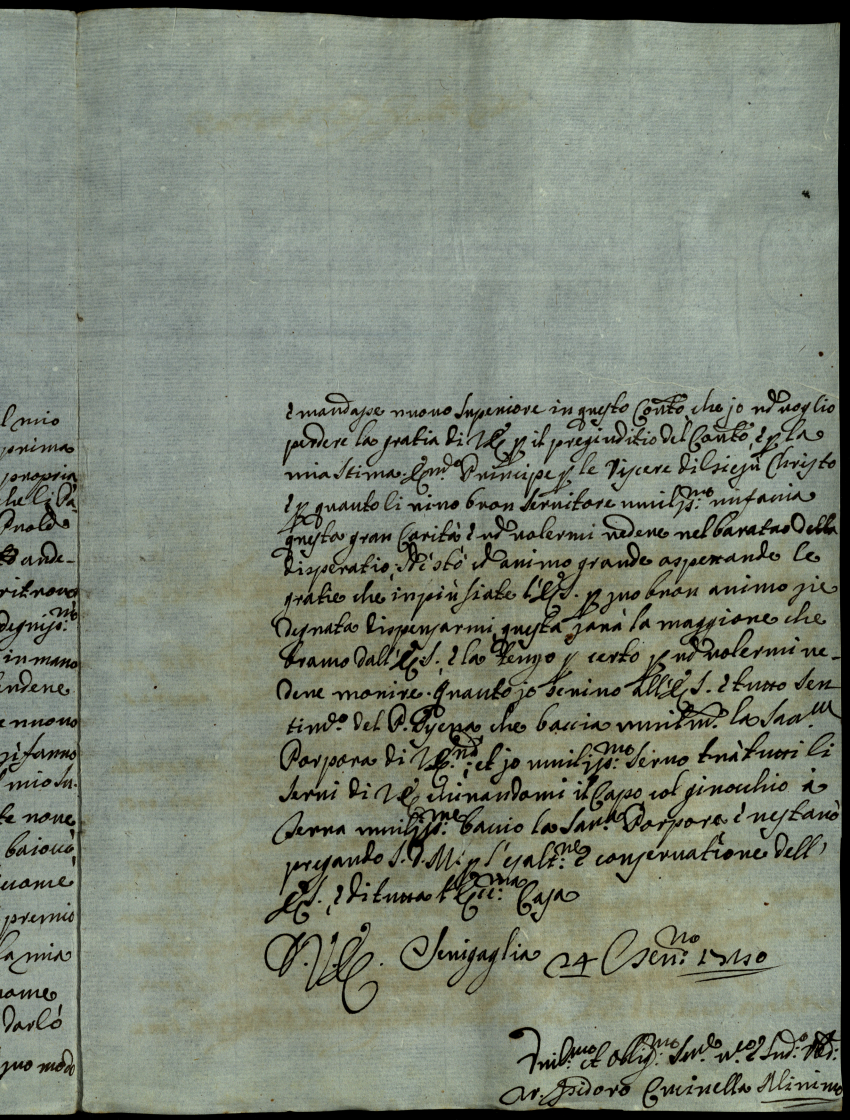 l mio
prima
propria
che li dà
ande-
ritrovo
in mano
endene
e nuovo
si fanno
l mio su-
te nove
baiocò
premio
la mia
name
darlò
suo modo
è mandasse nuovo Superiore in questo Conto, che jo nō voglio
perdere la gratia di VE p il pregiuditio del Conto, è p la
mia stima. Em.º Principe p le Viscere di Giesù Christo
è p quanto li vivo bvon Servitore vmiliss:mo mi facia
questa gran Carità è nō volermi vedere nel baratro della
disperatio. Mà stò cō animo grande aspettando le
gratie che in più fiate l'E.S. p suo bvon animo sie
degnata dispensarmi, questa sarà la maggiore che
bramo dall'E.S. è la tengo p certo p nō volermi ve-
dere morire. Quanto jo scrivo all'E.S. è tutto sen
tim.º del P. che baccia vmilm. la Sac.
Porpora di et jo vmiliss:mo Servo trà tutti li
servi di VE chinandomi il Capo col ginocchio à
terra vmiliss:me bacio la Sac.ra Porpora è restarò
pregando S.D.M. p l'esalt:ne è conservatione dell'
E.S. è di tutta l'Ecc:ma Casa
D.V.E. Senigaglia 24 Gen:no 1740
Vmil:mo et Obblig:mo
Fr. Isidoro Minimo